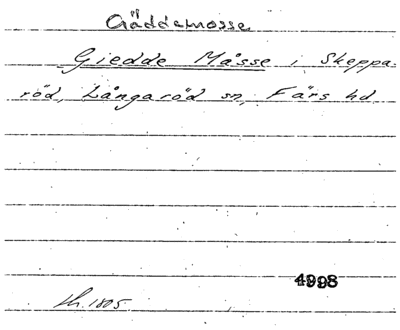 Gäddemosse
Giedde Måsse i Skeppa-
röd, Långaröd sn, Färs hd
4998
1805